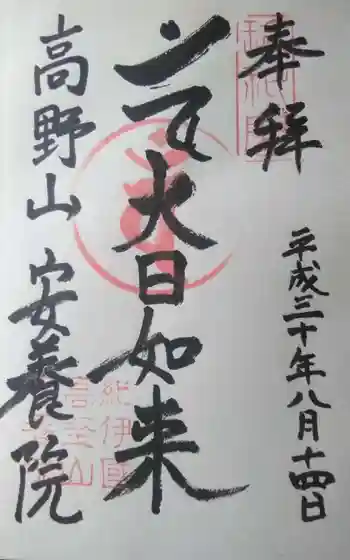 奉拝
平成三十年八月十四日
大日如来
高野山 安養院
紀伊國